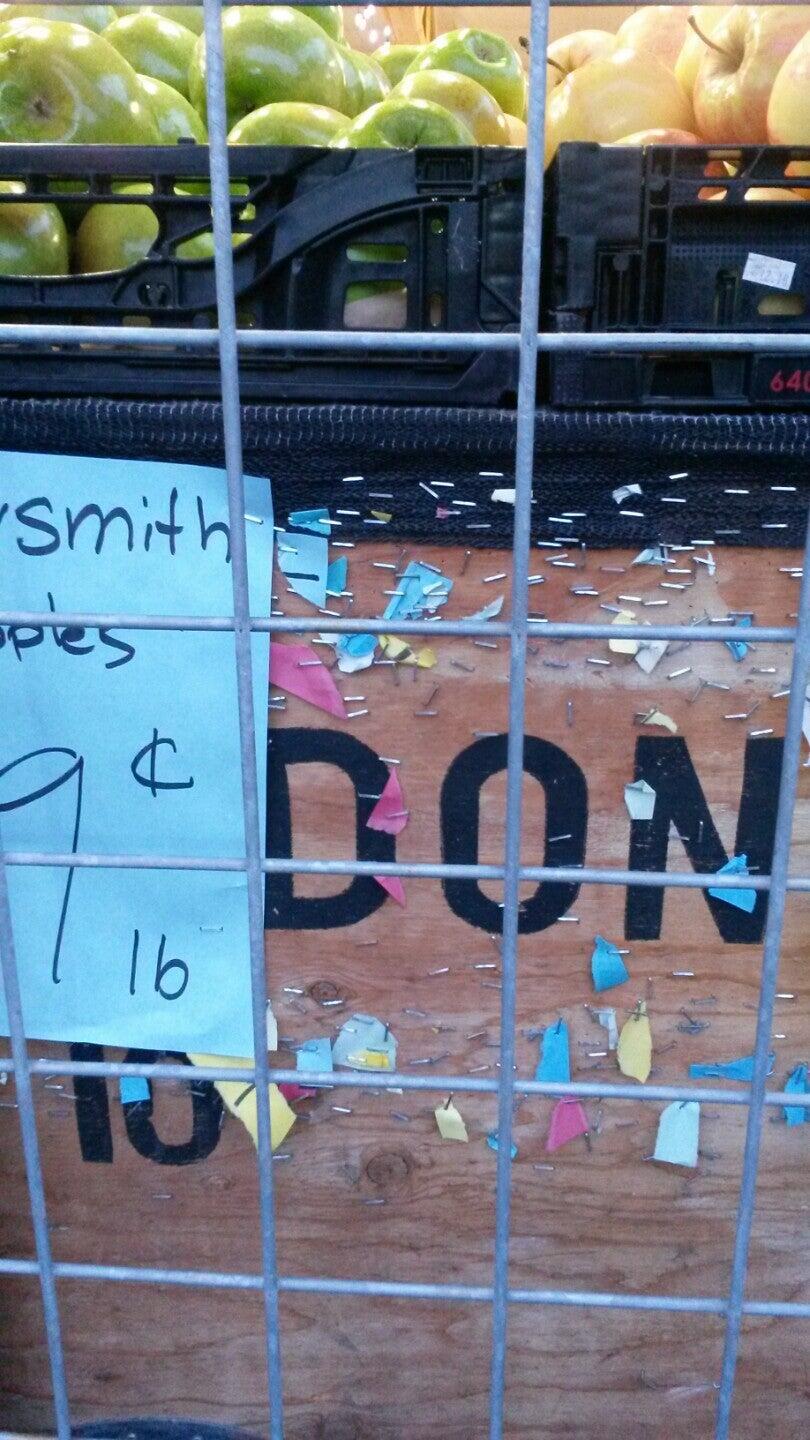 ysmith
pples
9¢
lb
DON
10
640